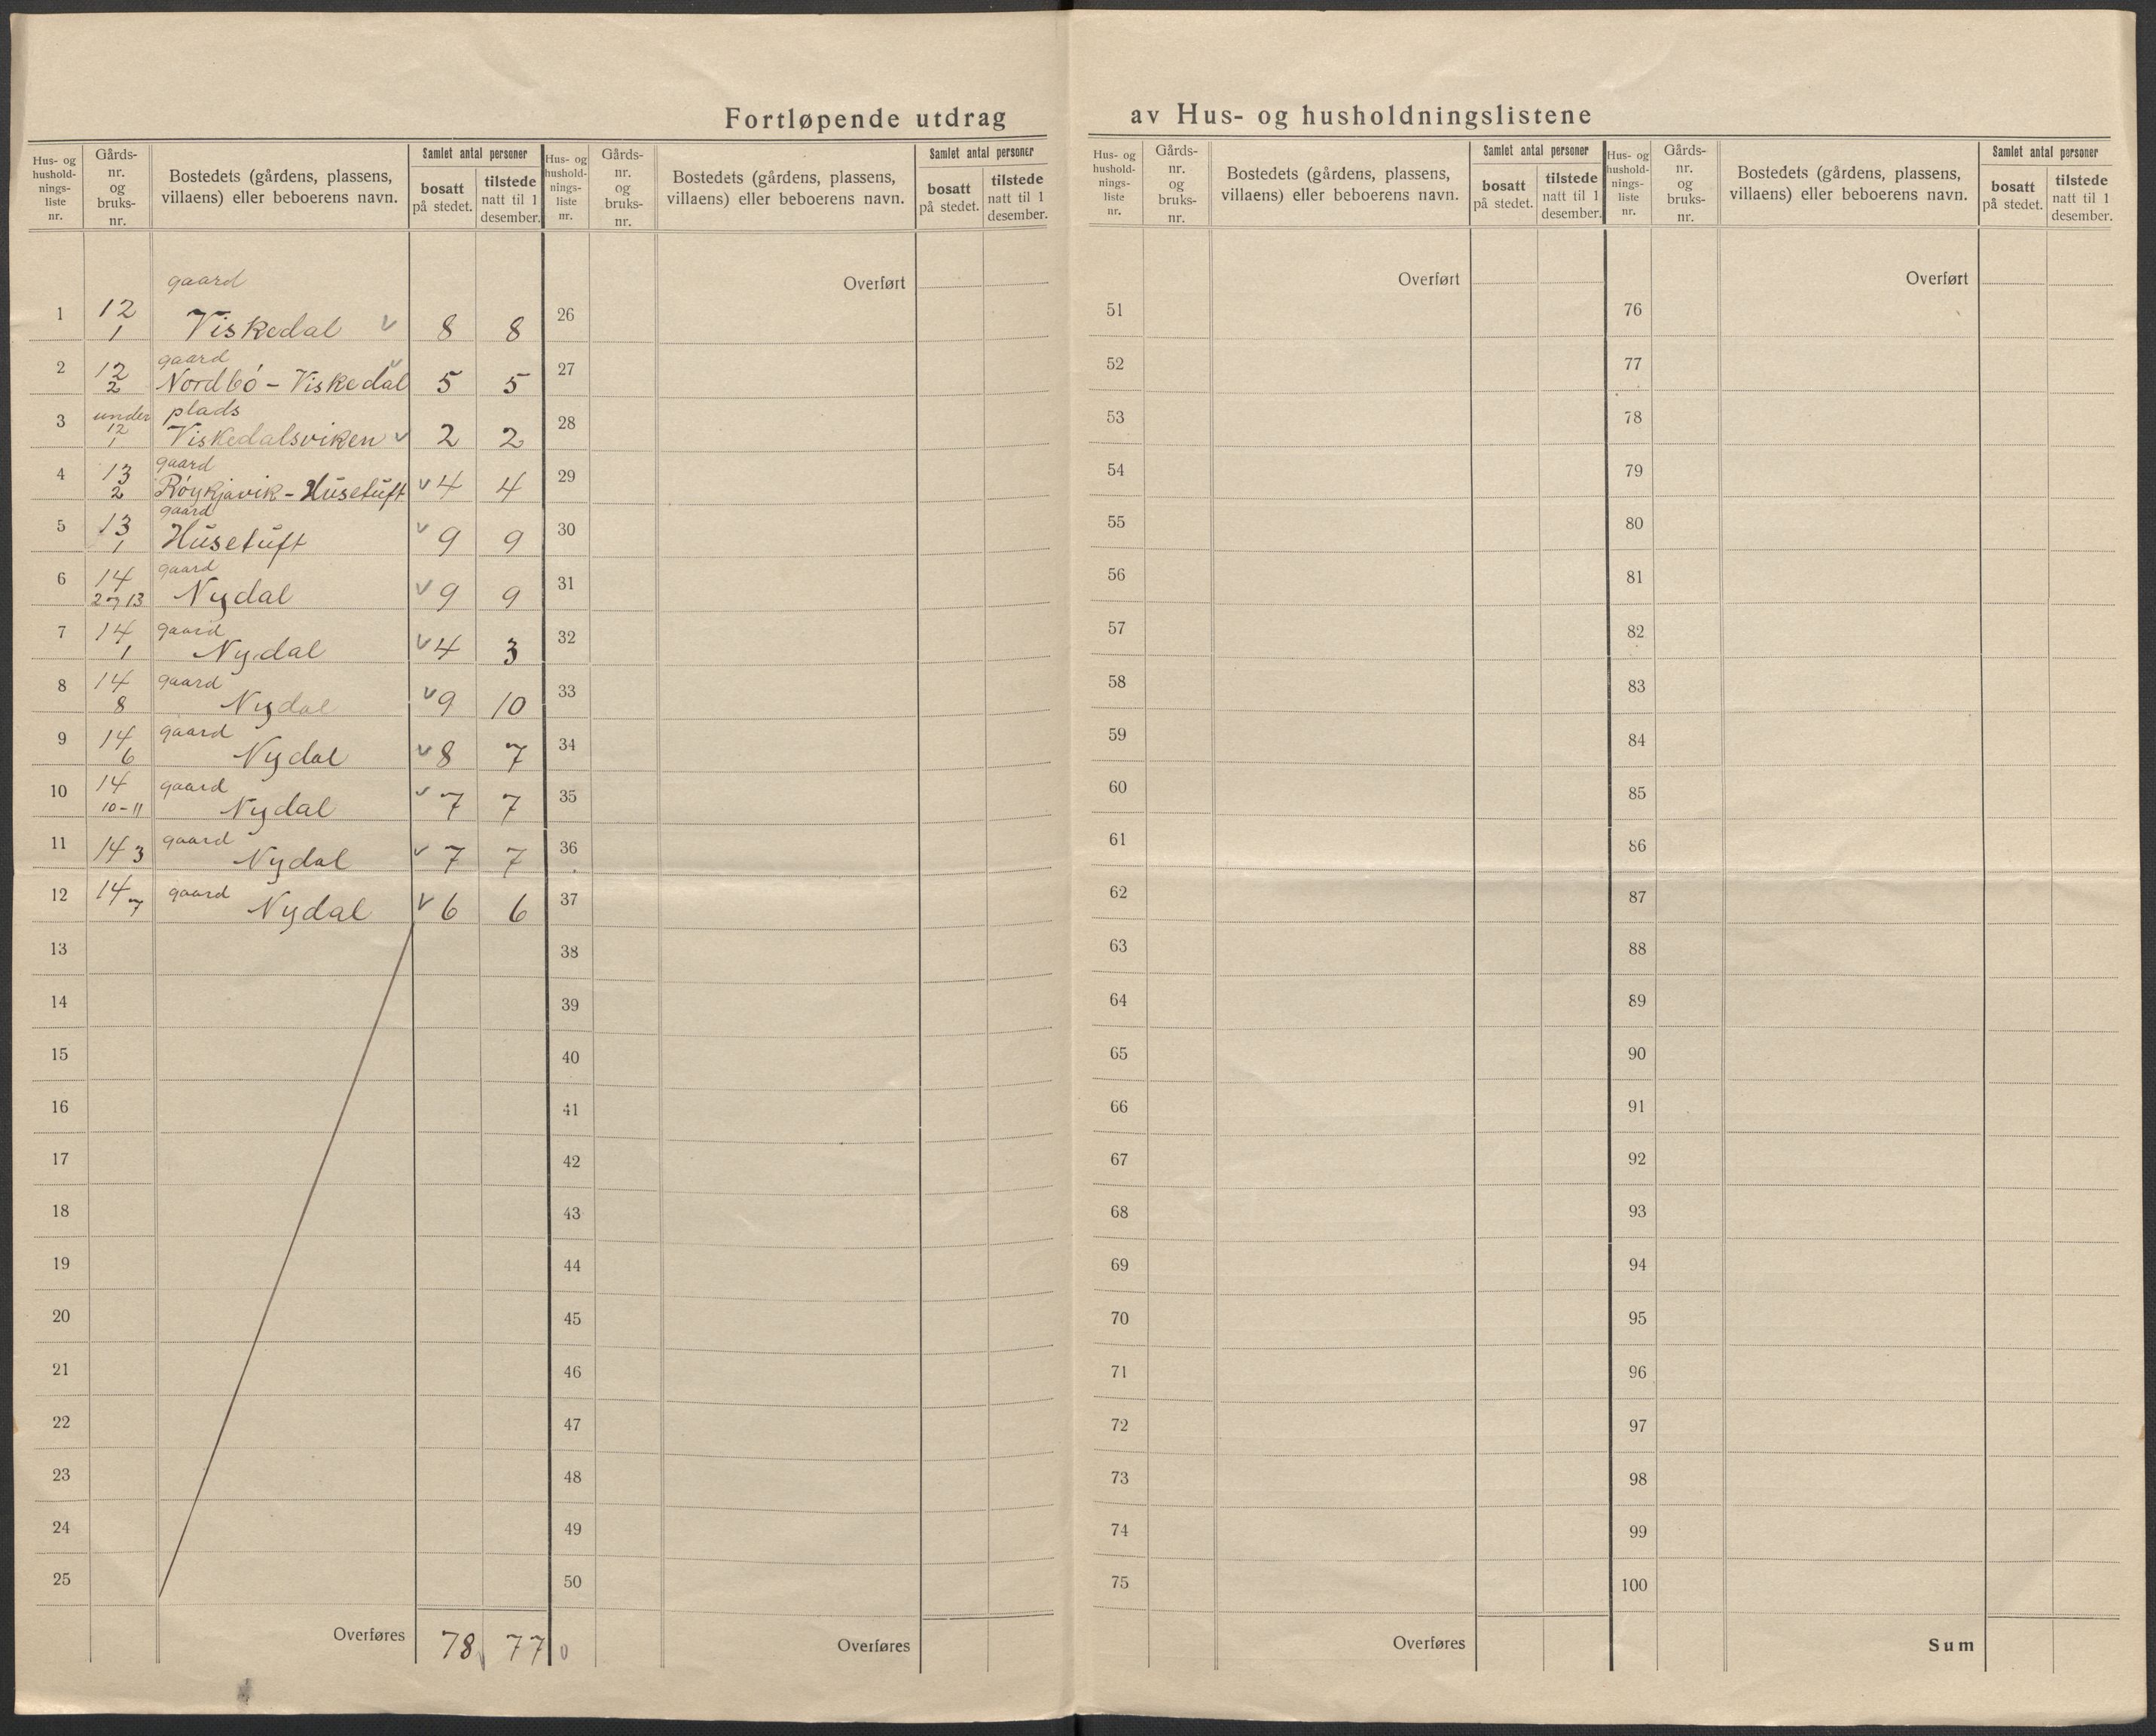 Fortløpende utdrag av Hus- og husholdningslistene
Hus- og hushold-nings-liste nr. | Gårds-nr. og bruks-nr. | Bostedets (gårdens, plassens, villaens) eller beboerens navn. | Samlet antal personer | bosatt på stedet. | tilstede natt til 1 desember.
1 | 12 1 | gaard Viskedal v | 8 | 8
2 | 12 2 | gaard Nordbó - Viskedal v | 5 | 5
3 | under 12 1 | plads Viskedalsviken v | 2 | 2
4 | 13 2 | gaard Róykjavik - Husetuft | v 4 | 4
5 | 13 1 | gaard Husetuft | v 9 | 9
6 | 14 2-7 13 | gaard Nydal | v 9 | 9
7 | 14 1 | gaard Nydal | v 4 | 3
8 | 14 8 | gaard Nydal | v 9 | 10
9 | 14 6 | gaard Nydal | v 8 | 7
10 | 14 10-11 | gaard Nydal | v 7 | 7
11 | 14 3 | gaard Nydal | v 7 | 7
12 | 14 7 | gaard Nydal | v 6 | 6
13
14
15
16
17
18
19
20
21
22
23
24
25
Overføres | 78 v | 77 v
Hus- og hushold-nings-liste nr. | Gårds-nr. og bruks-nr. | Bostedets (gårdens, plassens, villaens) eller beboerens navn. | Samlet antal personer | bosatt på stedet. | tilstede natt til 1 desember.
Overført
26
27
28
29
30
31
32
33
34
35
36
37
38
39
40
41
42
43
44
45
46
47
48
49
50
Overføres
Hus- og hushold-nings-liste nr. | Gårds-nr. og bruks-nr. | Bostedets (gårdens, plassens, villaens) eller beboerens navn. | Samlet antal personer | bosatt på stedet. | tilstede natt til 1 desember.
Overført
51
52
53
54
55
56
57
58
59
60
61
62
63
64
65
66
67
68
69
70
71
72
73
74
75
Overføres
Hus- og hushold-nings-liste nr. | Gårds-nr. og bruks-nr. | Bostedets (gårdens, plassens, villaens) eller beboerens navn. | Samlet antal personer | bosatt på stedet. | tilstede natt til 1 desember.
Overført
76
77
78
79
80
81
82
83
84
85
86
87
88
89
90
91
92
93
94
95
96
97
98
99
100
Sum